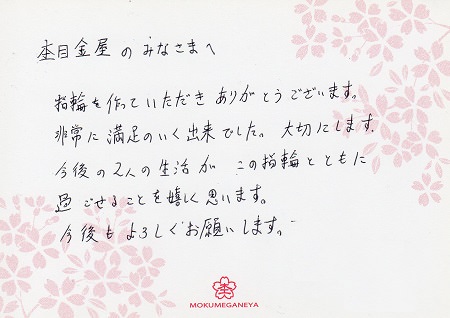 杢目金屋のみなさまへ
指輪を作っていただきありがとうございます。
非常に満足のいく出来でした。大切にします。
今後の2人の生活がこの指輪とともに
過ごせることを嬉しく思います。
今後もよろしくお願いします。
杢
MOKUMEGANEYA